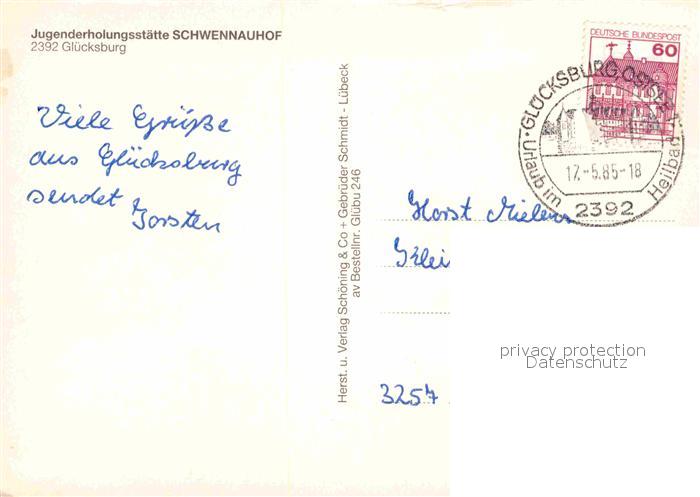 Jugenderholungsstätte SCHWENNAUHOF
2392 Glücksburg
Viele Grüße
aus Glücksburg
sendet
Torsten
Herst. u. Verlag Schöning & Co + Gebrüder Schmidt - Lübeck
av Bestellnr. Glübu 246
DEUTSCHE BUNDESPOST
60
GLÜCKSBURG, OSTSEE
Urlaub im Heilbad
17.-5.85-18
2392
Horst
3257
privacy protection
Datenschutz